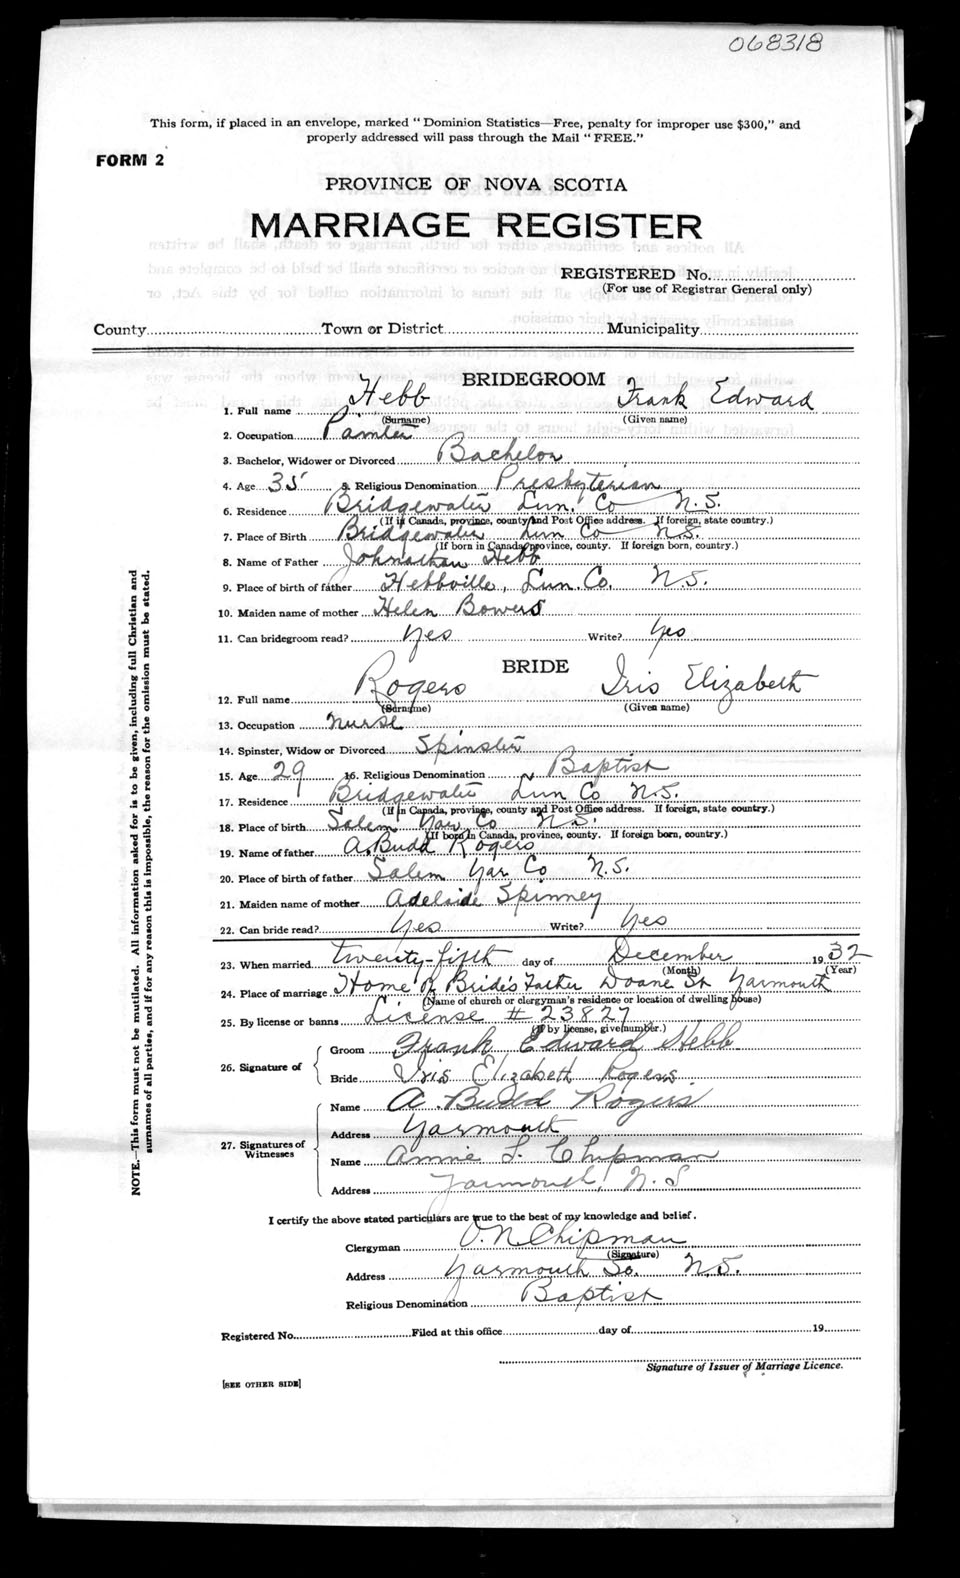 068318
This form, if placed in an envelope, marked "Dominion Statistics—Free, penalty for improper use $300," and
properly addressed will pass through the Mail "FREE."
FORM 2
PROVINCE OF NOVA SCOTIA
MARRIAGE REGISTER
REGISTERED No.
(For use of Registrar General only)
County Town or District Municipality
BRIDEGROOM
1. Full name Hebb Frank Edward
(Surname) (Given name)
2. Occupation Painter
3. Bachelor, Widower or Divorced Bachelor
4. Age 35 5. Religious Denomination Presbyterian
6. Residence Bridgewater Lun. Co N.S.
(If in Canada, province, county and Post Office address. If foreign, state country.)
7. Place of Birth Bridgewater Lun Co N.S.
(If born in Canada, province, county. If foreign born, country.)
8. Name of Father Johnathan Hebb
9. Place of birth of father Hebbville, Lun. Co. N.S.
10. Maiden name of mother Helen Bowers
11. Can bridegroom read? Yes Write? Yes
BRIDE
12. Full name Rogers Iris Elizabeth
(Surname) (Given name)
13. Occupation Nurse
14. Spinster, Widow or Divorced Spinster
15. Age 29 16. Religious Denomination Baptist
17. Residence Bridgewater Lun Co N.S.
(If in Canada, province, county and Post Office address. If foreign, state country.)
18. Place of birth Salem Yar Co N.S.
(If born in Canada, province, county. If foreign born, country.)
19. Name of father A. Budd Rogers
20. Place of birth of father Salem Yar Co N.S.
21. Maiden name of mother Adelaide Spinney
22. Can bride read? Yes Write? Yes
23. When married twenty-fifth day of December 1932
(Month) (Year)
24. Place of marriage Home of Bride's Father Doane St Yarmouth
(Name of church or clergyman's residence or location of dwelling house)
25. By license or banns License # 23827
(If by license, give number.)
26. Signature of
Groom Frank Edward Hebb
Bride Iris Elizabeth Rogers
27. Signatures of Witnesses
Name A Budd Rogers
Address Yarmouth
Name Annie L. Chipman
Address Yarmouth, N.S
I certify the above stated particulars are true to the best of my knowledge and belief.
Clergyman O.N. Chipman
(Signature)
Address Yarmouth So. N.S.
Religious Denomination Baptist
Registered No. Filed at this office day of 19
Signature of Issuer of Marriage Licence.
[SEE OTHER SIDE]
NOTE.—This form must not be mutilated. All information asked for is to be given, including full Christian and
surnames of all parties, and if for any reason this is impossible, the reason for the omission must be stated.